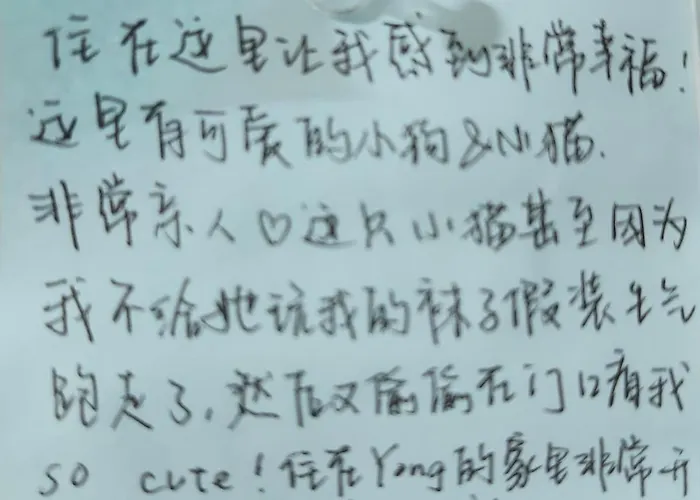 住在这里让我感到非常幸福!
这里有可爱的小狗&小猫.
非常亲人♡这只小猫甚至因为
我不给她玩我的袜子假装生气
跑走了,然后又偷偷在门口看我
so cute!住在Yong的家里非常开